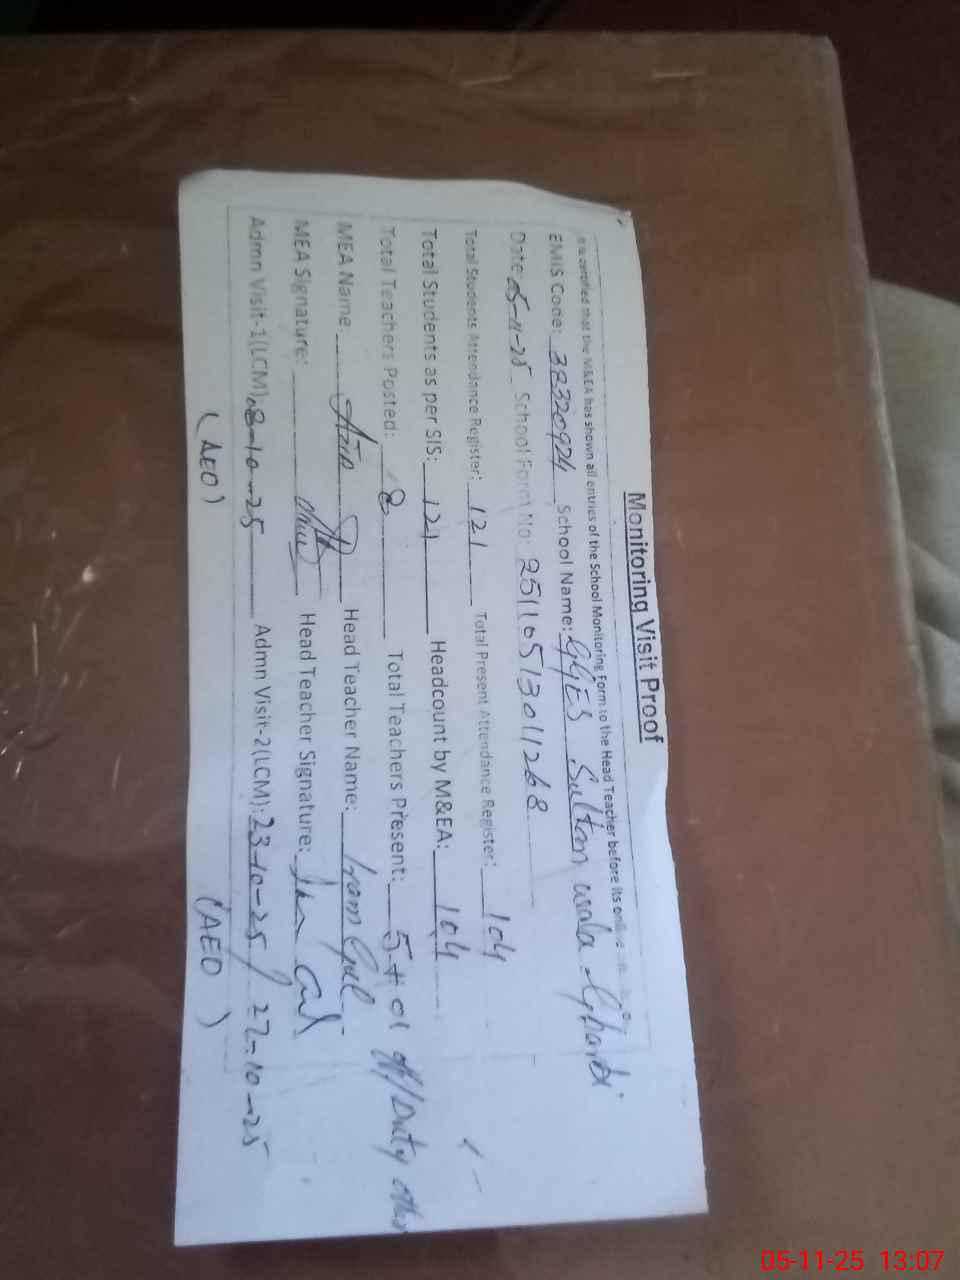 Monitoring Visit Proof
It is certified that the M&EA has shown all entries of the School Monitoring Form to the Head Teacher before its
EMIS Code: 38320924 School Name: GGES Sultan wala Gharbi
Date: 05-11-25 School Form No: 2511051301 1268
Total Students Attendance Register: 121 Total Present Attendance Register: 104
Total Students as per SIS: 121 Headcount by M&EA: 104
Total Teachers Posted: 8 Total Teachers Present: 5 + 01 off/Duty other
MEA Name: Head Teacher Name: Iram Gul
MEA Signature: Head Teacher Signature:
Admn Visit-1(LCM): 8-10-25 Admn Visit-2(LCM): 23-10-25 / 27-10-25
(AEO) (AEO)
05-11-25 13:07